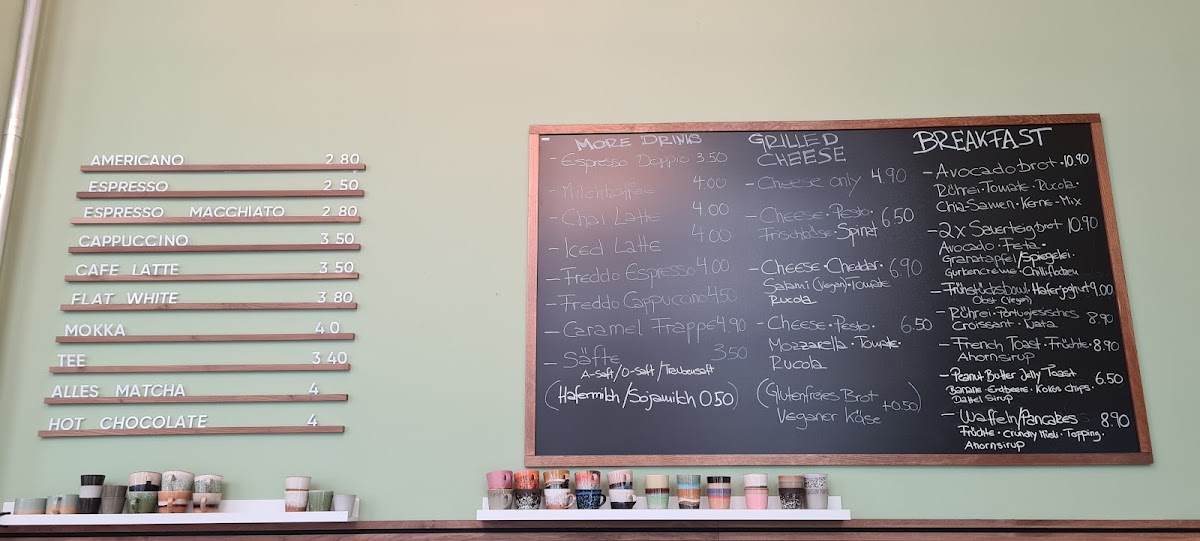 AMERICANO 2.80
ESPRESSO 2.50
ESPRESSO MACCHIATO 2.80
CAPPUCCINO 3.50
CAFE LATTE 3.50
FLAT WHITE 3.80
MOKKA 4.0
TEE 3.40
ALLES MATCHA 4
HOT CHOCOLATE 4
MORE DRINKS
- Espresso Doppio 3.50
- Milchkaffee 4.00
- Chai Latte 4.00
- Iced Latte 4.00
- Freddo Espresso 4.00
- Freddo Cappuccino 4.50
- Caramel Frappé 4.90
- Säfte 3.50
A-Saft/O-Saft/Traubensaft
(Hafermilch/Sojamilch 0.50)
GRILLED
CHEESE
- Cheese only 4.90
- Cheese · Pesto · 6.50
Frischkäse · Spinat
- Cheese · Cheddar · 6.90
Salami (vegan) · Tomate
Rucola
- Cheese · Pesto · 6.50
Mozzarella · Tomate ·
Rucola
(Glutenfreies Brot +0.50)
Veganer Käse
BREAKFAST
- Avocadobrot · 10.90
Rührei · Tomate · Rucola ·
Chia-Samen · Kerne-Mix
- 2x Sauerteigbrot 10.90
Avocado · Feta ·
Granatapfel/Spiegelei ·
Gurkencreme · Chiliflocken
- Frühstücksbowl · Haferjoghurt 9.00
Obst (Vegan)
- Rührei · Portugiesisches 8.90
Croissant · Nata
- French Toast · Früchte · 8.90
Ahornsirup
- Peanut Butter Jelly Toast 6.50
Banane · Erdbeere · Kokos Chips ·
Dattel Sirup
- Waffeln/Pancakes 8.90
Früchte · Crunchy Müsli · Topping ·
Ahornsirup